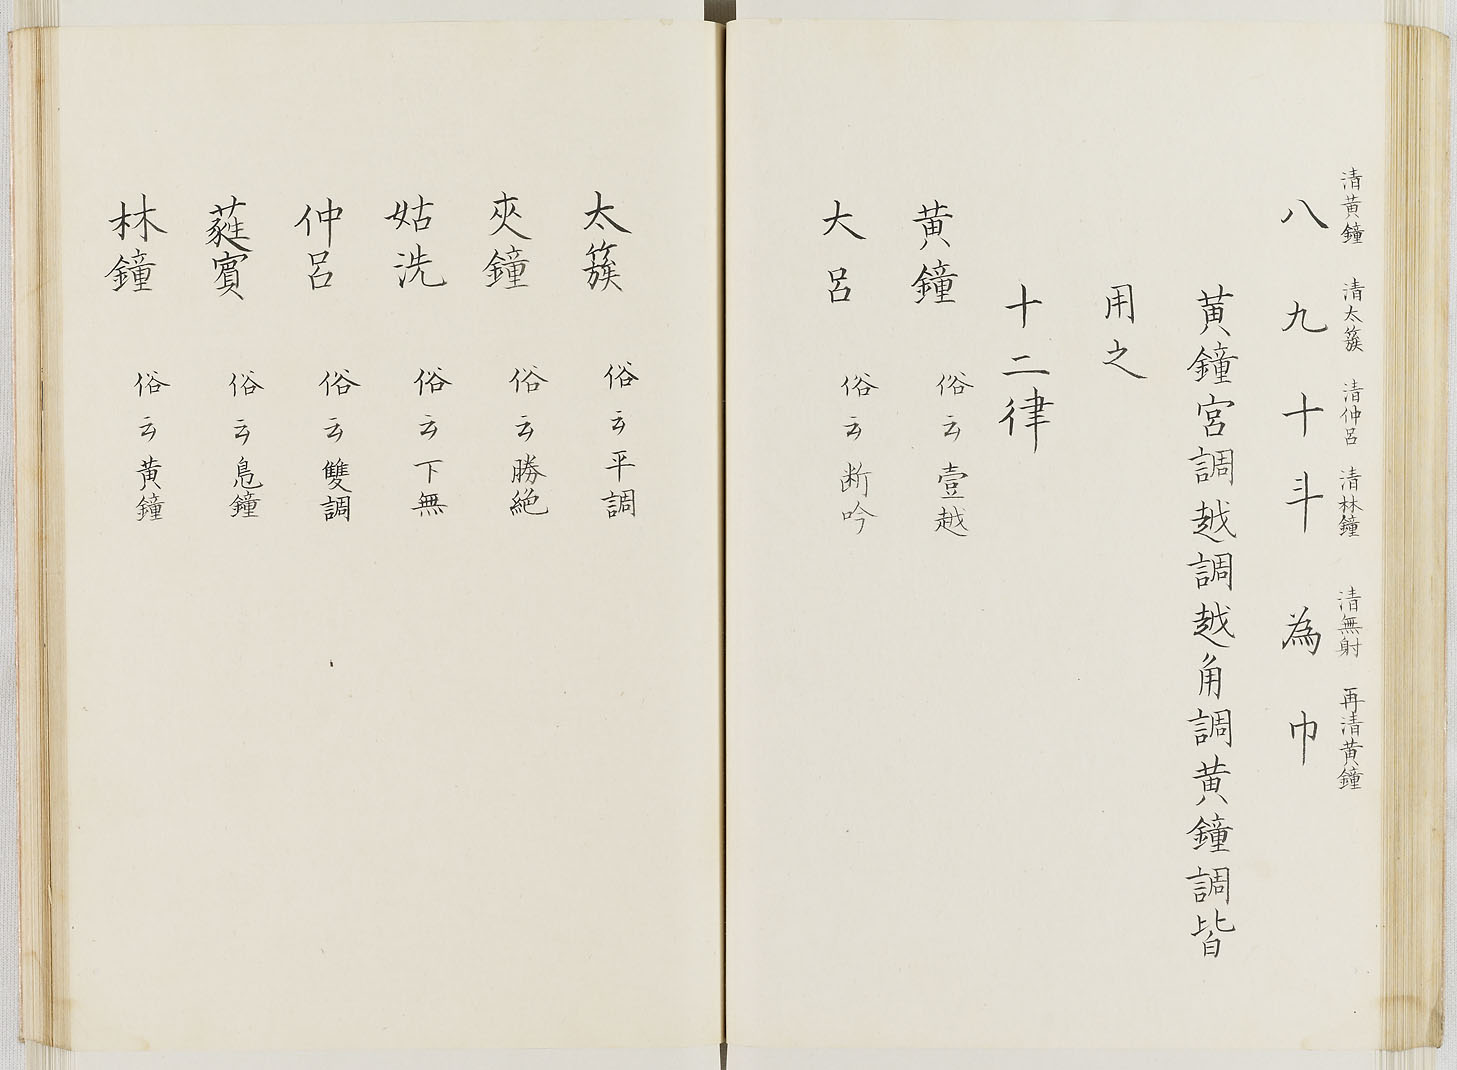 清黃鐘 清太簇 清仲呂 清林鐘 清無射 再清黃鐘
八 九 十 斗 為 巾
黃鐘宮調越調越角調黃鐘調皆
用之
十二律
黃鐘 俗云壹越
大呂 俗云断吟
太簇 俗云平調
夾鐘 俗云勝絶
姑洗 俗云下無
仲呂 俗云雙調
蕤賓 俗云鳧鐘
林鐘 俗云黃鐘